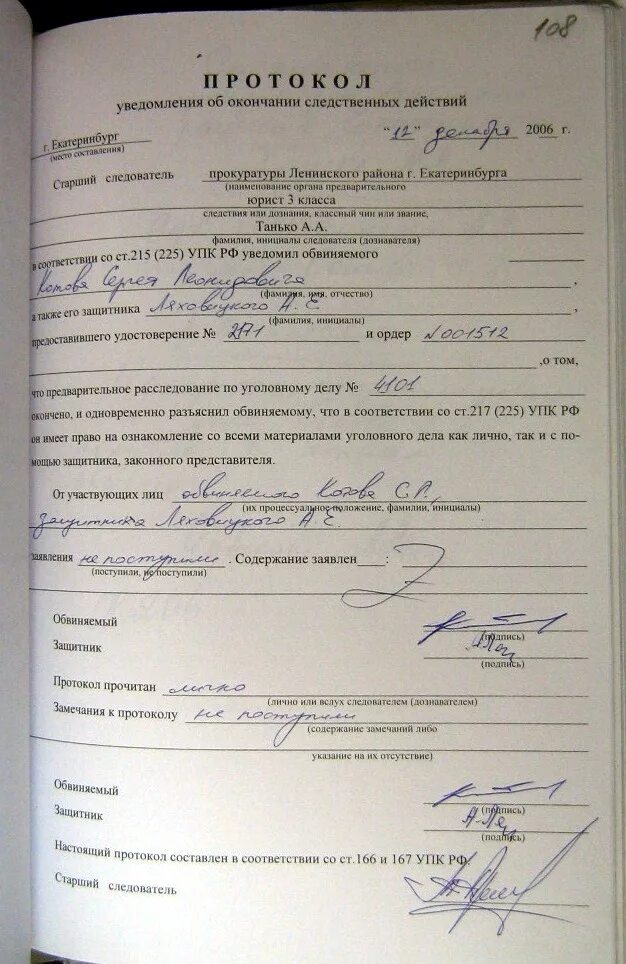 108
ПРОТОКОЛ
уведомления об окончании следственных действий
г. Екатеринбург "12" декабря 2006 г.
(место составления)
Старший следователь прокуратуры Ленинского района г. Екатеринбурга
(наименование органа предварительного
юрист 3 класса
следствия или дознания, классный чин или звание,
Танько А.А.
фамилия, инициалы следователя (дознавателя)
в соответствии со ст.215 (225) УПК РФ уведомил обвиняемого
Котова Сергея Леонидовича ,
(фамилия, имя, отчество)
а также его защитника Ляховицкого А.Е. ,
(фамилия, инициалы)
предоставившего удостоверение № 2171 и ордер №001512
,о том,
что предварительное расследование по уголовному делу № 4101
окончено, и одновременно разъяснил обвиняемому, что в соответствии со ст.217 (225) УПК РФ
он имеет право на ознакомление со всеми материалами уголовного дела как лично, так и с по-
мощью защитника, законного представителя.
От участвующих лиц обвиняемого Котова С.Л.,
(их процессуальное положение, фамилии, инициалы)
защитника Ляховицкого А.Е.
заявления не поступили . Содержание заявлен :
(поступили, не поступили)
Обвиняемый
(подпись)
Защитник
(подпись)
Протокол прочитан лично
(лично или вслух следователем (дознавателем)
Замечания к протоколу не поступили
(содержание замечаний либо
указание на их отсутствие)
Обвиняемый
(подпись)
Защитник
(подпись)
Настоящий протокол составлен в соответствии со ст.166 и 167 УПК РФ.
Старший следователь